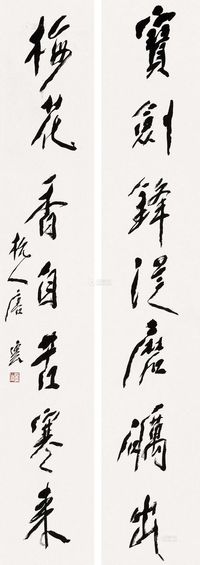 寶劍鋒從磨礪出
梅花香自苦寒來
杭人唐雲